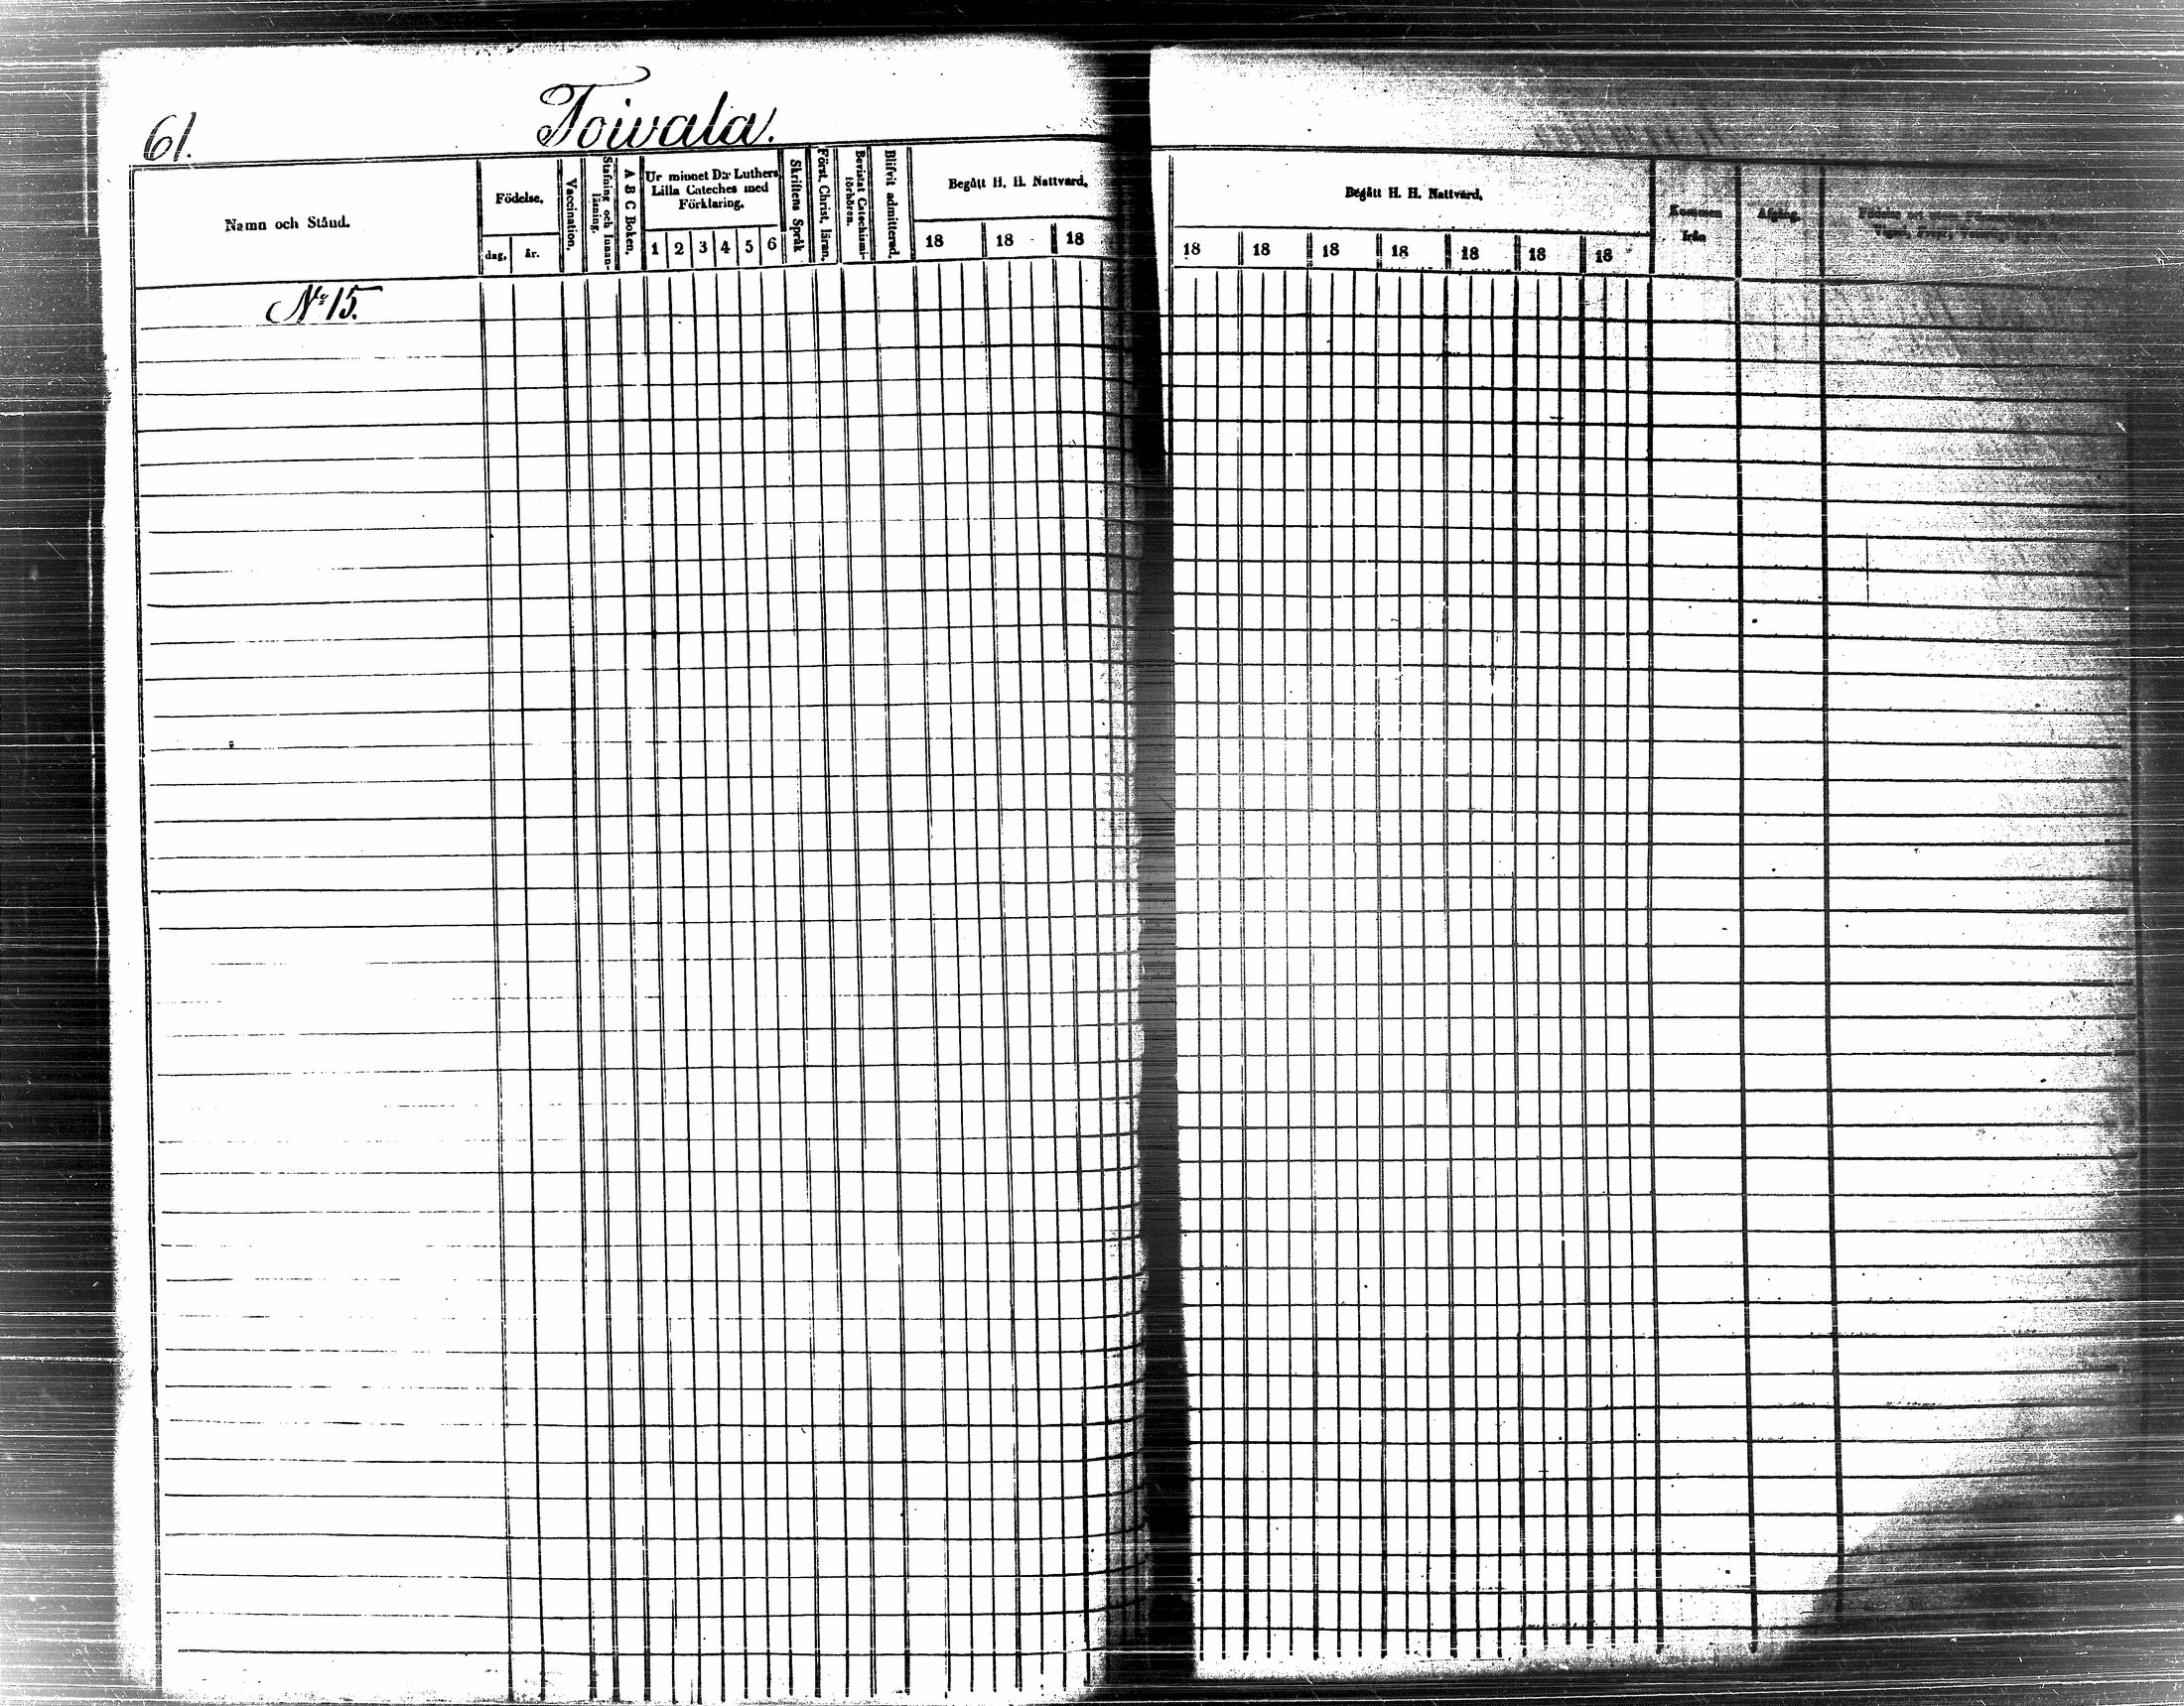 61. Toivala.
Namn och Stånd.
Födelse.
dag, år.
Vaccination.
Stafning och Innan-
läsning.
A B C Boken.
Ur minnet D:r Luthers
Lilla Cateches med
Förklaring.
1 2 3 4 5 6
Skriftens Språk
Först. Christ. läran.
Bevistat Catechismi-
förhören.
Blifvit admitterad.
Begått H. H. Nattvard.
18 18 18
Begått H. H. Nattvard.
18 18 18 18 18 18 18
Kommen
från
Afgång.
No 15.